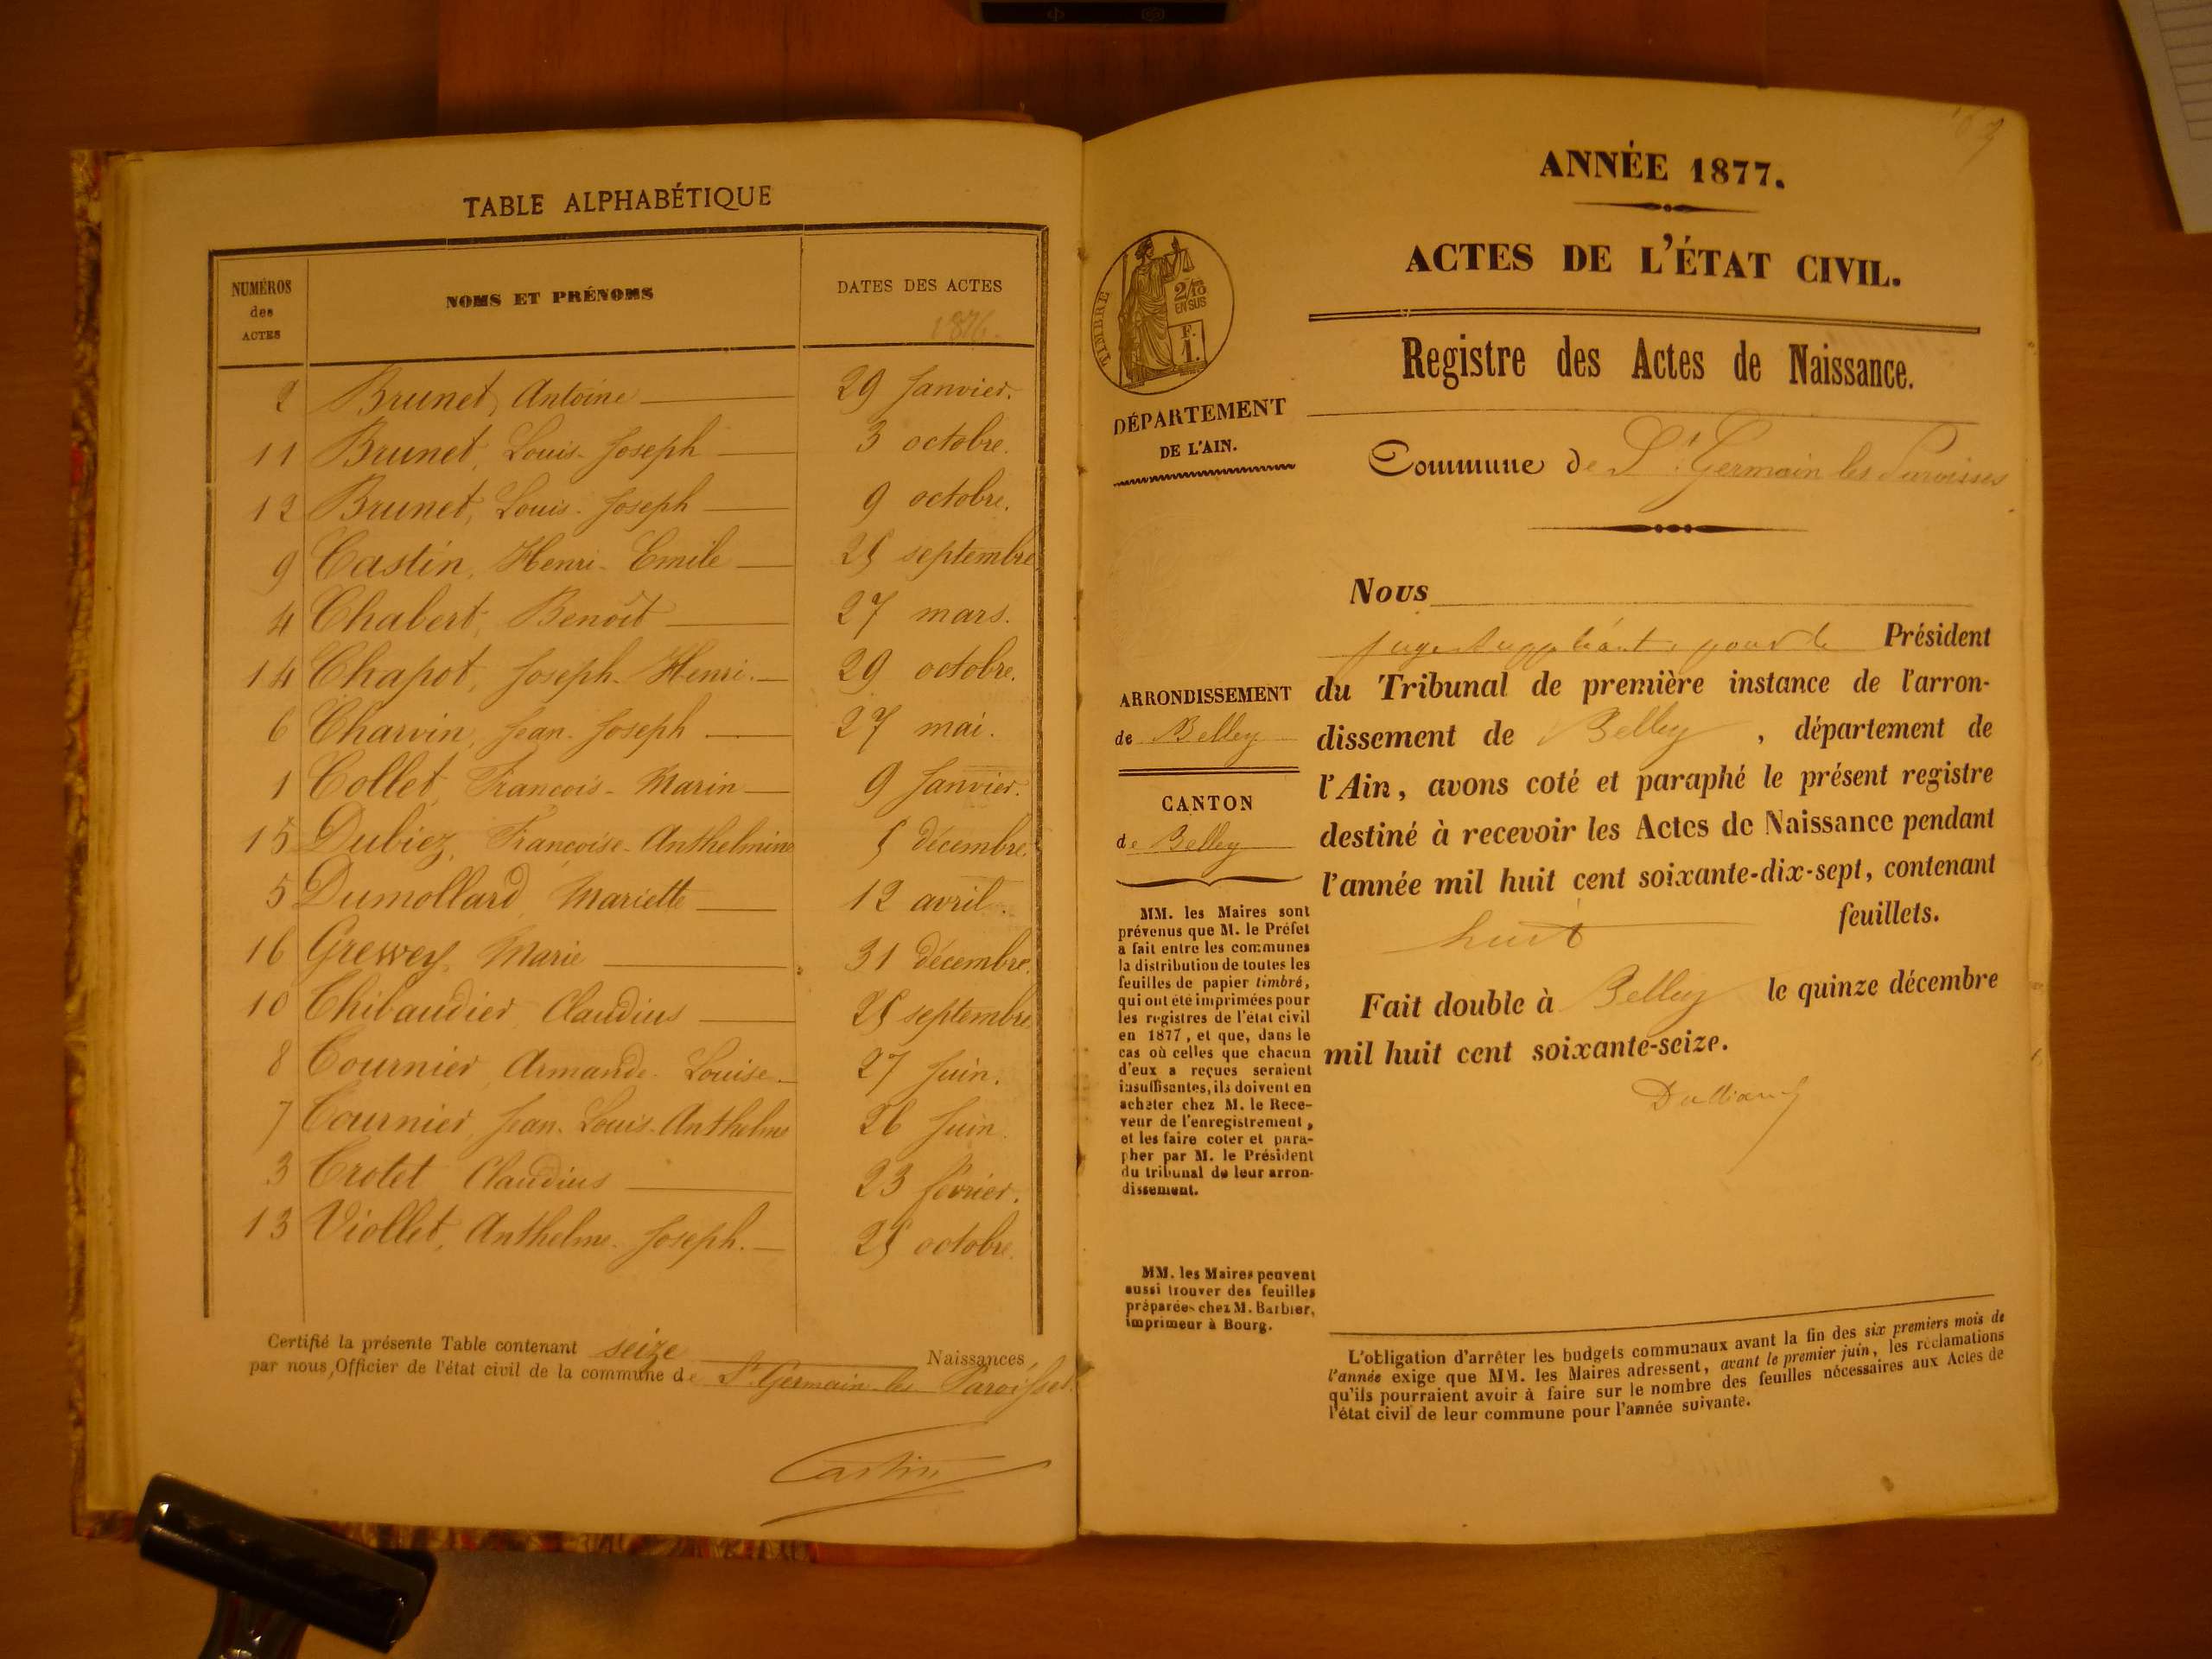 TABLE ALPHABÉTIQUE
NUMÉROS
des
ACTES
NOMS ET PRÉNOMS
DATES DES ACTES
1876.
2 Brunet, Antoine 29 Janvier.
11 Brunet, Louis-Joseph 3 octobre.
12 Brunet, Louis-Joseph 9 octobre.
9 Castin, Henri-Emile 25 septembre
4 Chabert, Benoît 27 mars.
14 Chapot, Joseph-Henri 29 octobre.
6 Charvin, Jean-Joseph 27 mai.
1 Collet, François-Marin 9 Janvier.
15 Dubiez, Françoise-Anthelmine 5 décembre.
5 Dumollard, Mariette 12 avril.
16 Marie 31 décembre.
10 Thibaudier Claudius 25 septembre
8 Tournier Armande-Louise 27 Juin.
7 Tournier Jean-Louis-Anthelme 26 Juin.
3 Trotet Claudius 23 février.
13 Viollet, Anthelme-Joseph. 25 octobre.
Certifié la présente Table contenant seize Naissances
par nous, Officier de l'état civil de la commune de St Germain les Paroisses.
Castin
ANNÉE 1877.
ACTES DE L'ÉTAT CIVIL.
TIMBRE
2/10
EN SUS
F.
1.
Registre des Actes de Naissance.
DÉPARTEMENT
DE L'AIN.
Commune de St Germain les Paroisses
Nous
juge suppléant, pour le Président
du Tribunal de première instance de l'arron-
dissement de Belley, département de
l'Ain, avons coté et paraphé le présent registre
destiné à recevoir les Actes de Naissance pendant
l'année mil huit cent soixante-dix-sept, contenant
huit feuillets.
Fait double à Belley le quinze décembre
mil huit cent soixante-seize.
ARRONDISSEMENT
de Belley
CANTON
de Belley
MM. les Maires sont
prévenus que M. le Préfet
a fait entre les communes
la distribution de toutes les
feuilles de papier timbré,
qui ont été imprimées pour
les registres de l'état civil
en 1877, et que, dans le
cas où celles que chacun
d'eux a reçues seraient
insuffisantes, ils doivent en
acheter chez M. le Rece-
veur de l'enregistrement,
et les faire coter et para-
pher par M. le Président
du tribunal de leur arron-
dissement.
MM. les Maires peuvent
aussi trouver des feuilles
préparées chez M. Barbier,
imprimeur à Bourg.
L'obligation d'arrêter les budgets communaux avant la fin des six premiers mois de
l'année exige que MM. les Maires adressent, avant le premier juin, les réclamations
qu'ils pourraient avoir à faire sur le nombre des feuilles nécessaires aux Actes de
l'état civil de leur commune pour l'année suivante.